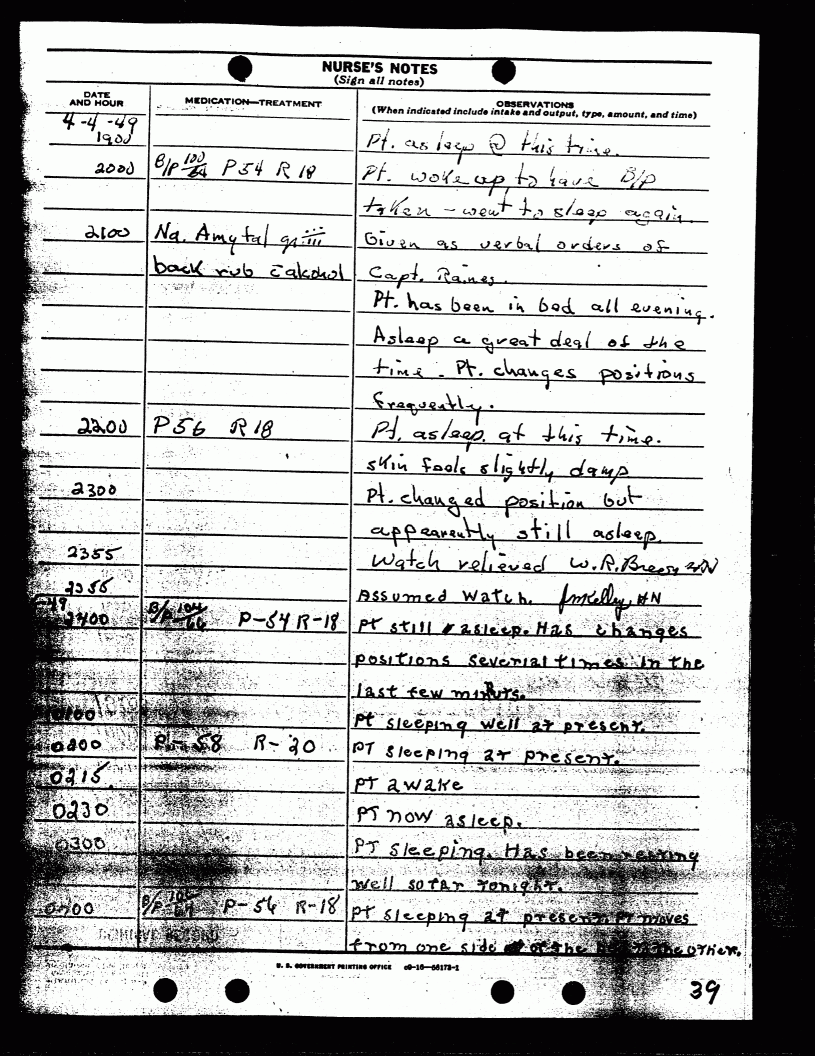 NURSE'S NOTES
(Sign all notes)
DATE
AND HOUR
MEDICATION—TREATMENT
OBSERVATIONS
(When indicated include intake and output, type, amount, and time)
4-4-49
1900 Pt. asleep @ this time.
2000 B/P 100/64 P54 R 18 Pt. woke up to have B/P
taken - went to sleep again.
2100 Na. Amytal gr iii Given as verbal orders of
back rub c̄ alcohol Capt. Raines.
Pt. has been in bed all evening.
Asleep a great deal of the
time - Pt. changes positions
frequently.
2200 P56 R18 Pt. asleep at this time.
skin feels slightly damp
2300 Pt. changed position but
appearently still asleep.
2355 Watch relieved W.R. HN
2355 Assumed watch. HN
2400 B/P 104/66 P-54 R-18 pt still asleep. Has changes
positions severial times in the
last few
0100 pt sleeping well at present.
0200 58 R-20 pt sleeping at present.
0215 pt awake
0230 pt now asleep.
0300 pt sleeping. Has been resting
well so far tonight.
0400 B/P P-56 R-18 pt sleeping at present. Pt moves
from one side of the to the other.
U. S. GOVERNMENT PRINTING OFFICE c9-16—55173-1
39